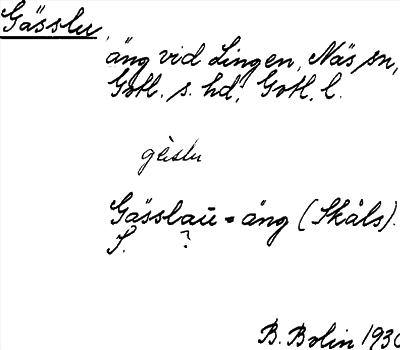 Gässlu,
äng vid Lingen, Näs sn,
Gotl. s. hd, Gotl. l.
gèslu
Gässlau = äng (Skåls).
S. ?
B. Bolin 1930